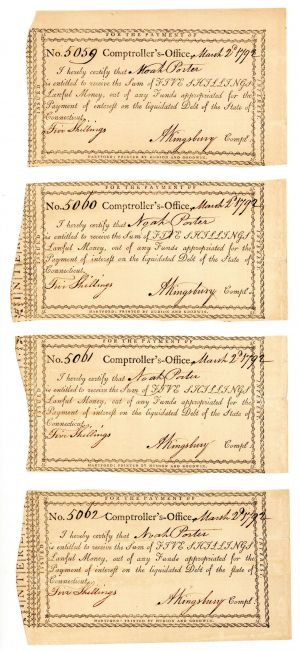 FOR THE PAYMENT OF
No. 5059 Comptroller's-Office, March 2d 1792
I hereby certify that Noah Porter
is entitled to receive the Sum of FIVE SHILLINGS
Lawful Money, out of any Funds appropriated for the
Payment of interest on the liquidated Debt of the State of
Connecticut,
Five Shillings
AKingsbury Compt.
HARTFORD: PRINTED BY HUDSON AND GOODWIN.
FOR THE PAYMENT OF
No. 5060 Comptroller's-Office, March 1792
I hereby certify that Noah Porter
is entitled to receive the Sum of FIVE SHILLINGS
Lawful Money, out of any Funds appropriated for the
Payment of interest on the liquidated Debt of the State of
Connecticut,
Five Shillings
AKingsbury Compl.
HARTFORD: PRINTED BY HUDSON AND GOODWIN.
FOR THE PAYMENT OF
No. 5061 Comptroller's-Office, March 2d 1792
I hereby certify that Noah Porter
is entitled to receive the Sum of FIVE SHILLINGS
Lawful Money, out of any Funds appropriated for the
Payment of interest on the liquidated Debt of the State of
Connecticut,
Five Shillings
AKingsbury Compt.
HARTFORD: PRINTED BY HUDSON AND GOODWIN.
FOR THE PAYMENT OF
No. 5062 Comptroller's-Office, March 2d 1792
I hereby certify that Noah Porter
is entitled to receive the Sum of FIVE SHILLINGS
Lawful Money, out of any Funds appropriated for the
Payment of interest on the liquidated Debt of the state of
Connecticut,
Five Shillings
AKingsbury Compt.
HARTFORD: PRINTED BY HUDSON AND GOODWIN.